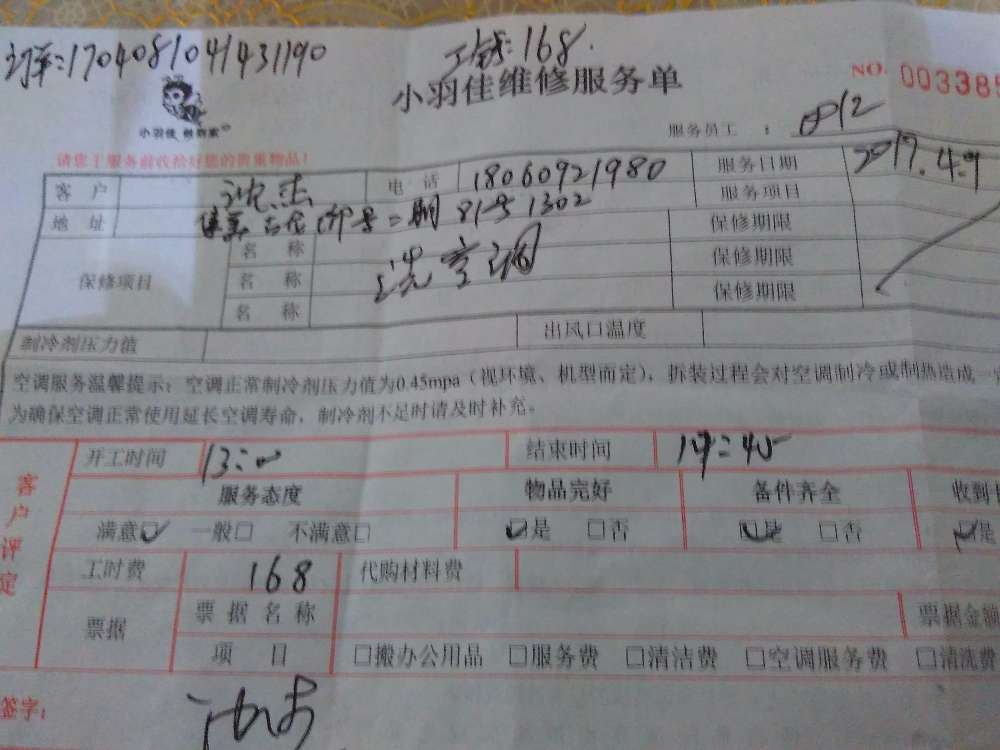 订单:1704081041431190
工钱:168.
小羽佳维修服务单
NO. 003385
小羽佳 帮到家
服务员工 : 0812
请您于服务前收拾好您的贵重物品!
客 户 沈杰 电 话 18060921980 服务日期 2017.4.9
地 址 二期 81号1302 服务项目
保修项目 名 称 洗空调 保修期限
名 称 保修期限
名 称 保修期限
制冷剂压力值 出风口温度
空调服务温馨提示:空调正常制冷剂压力值为0.45mpa(视环境、机型而定),拆装过程会对空调制冷或制热造成一
为确保空调正常使用延长空调寿命,制冷剂不足时请及时补充。
客户评定
开工时间 13:00 结束时间 14:45
服务态度 物品完好 备件齐全 收到
满意☑ 一般□ 不满意□ ☑是 □否 ☑是 □否 ☑是
工时费 168 代购材料费
票据 票据名称 票据金额
项 目 □搬办公用品 □服务费 □清洁费 □空调服务费 □清洗费
签字: